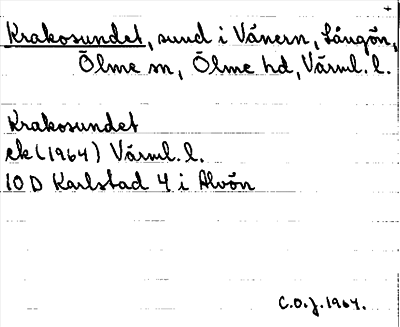 Krakosundet, sund i Vänern, Långön,
Ölme sn, Ölme hd, Värml. l.
Krakosundet
ek (1964) Värml. l.
10 D Karlstad 4 i Alvön
C.O.J. 1964.